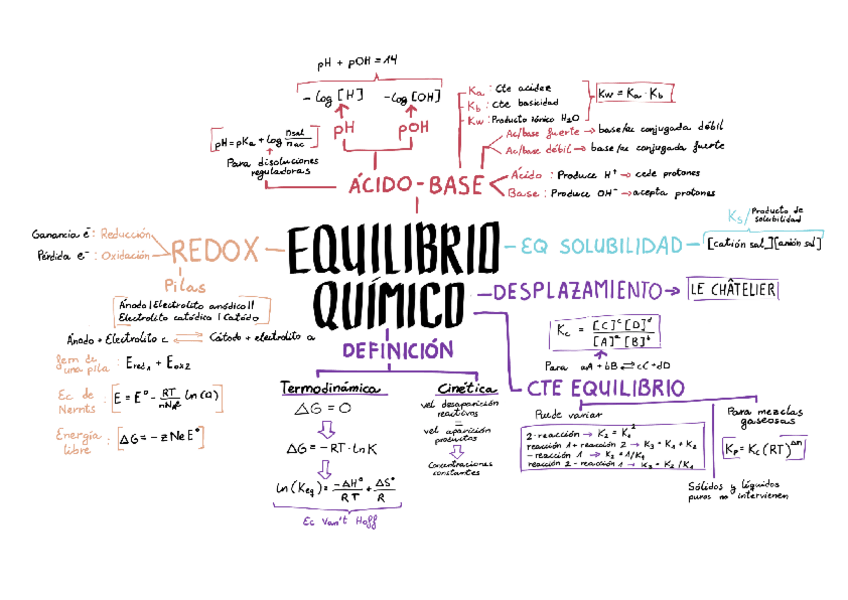 pH + pOH = 14
- log [H]
- log [OH]
pH
pOH
pH = pKa + log nsal/nac
Para disoluciones
reguladoras
Ka : Cte acidez
Kb : cte basicidad
Kw : Producto iónico H₂O
Kw = Ka · Kb
Ac/base fuerte → base/ac conjugada débil
Ac/base débil → base/ac conjugada fuerte
ÁCIDO - BASE
Ácido : Produce H⁺ → cede protones
Base : Produce OH⁻ → acepta protones
EQUILIBRIO
QUÍMICO
REDOX
Ganancia e⁻ : Reducción
Pérdida e⁻ : Oxidación
Pilas
Ánodo | Electrolito anódico ||
Electrolito catódico | Catódo
Ánodo + Electrolito c ⇌ Cátodo + electrolito a
fem de
una pila : Ered1 + Eox2
Ec de
Nernts : E = E° - RT/nNF ln (Q)
Energía
libre : ΔG = - z Ne E°
EQ SOLUBILIDAD
Ks / Producto de
solubilidad
[catión sal][anión sal]
DESPLAZAMIENTO → LE CHÂTELIER
DEFINICIÓN
Termodinámica
ΔG = 0
ΔG = - RT · ln K
ln (Keq) = -ΔH°/RT + ΔS°/R
Ec Van't Hoff
Cinética
vel desaparición
reactivos
=
vel aparición
productos
Concentraciones
constantes
CTE EQUILIBRIO
Kc = [C]ᶜ [D]ᵈ / [A]ᵃ [B]ᵇ
Para aA + bB ⇌ cC + dD
Puede variar
2 · reacción → K₂ = K₁²
reacción 1 + reacción 2 → K₃ = K₁ + K₂
- reacción 1 → K₂ = 1/K₁
reacción 2 - reacción 1 → K₃ = K₂ / K₁
Para mezclas
gaseosas
Kp = Kc (RT)^Δn
Sólidos y líquidos
puros no intervienen